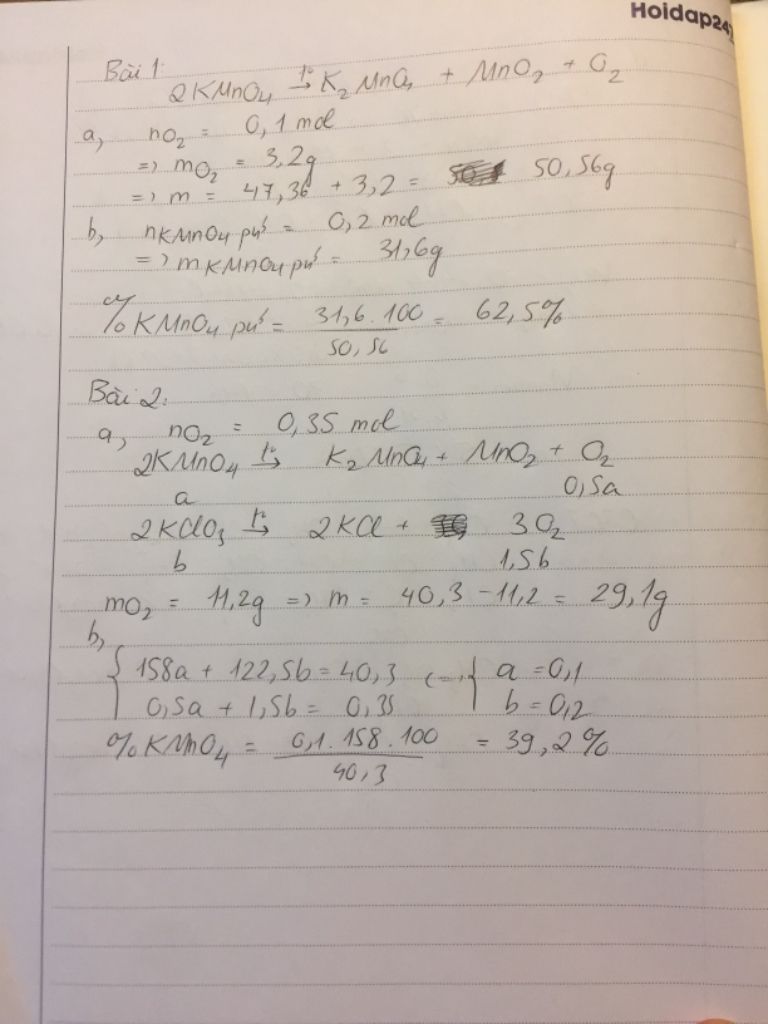 Hoidap247
Bài 1:
2KMnO₄ →t° K₂MnO₄ + MnO₂ + O₂
a, nO₂ = 0,1 mol
=> mO₂ = 3,2g
=> m = 47,36 + 3,2 = 50,56g
b, nKMnO₄ pứ = 0,2 mol
=> mKMnO₄ pứ = 31,6g
% KMnO₄ pứ = 31,6.100 = 62,5%
50,56
Bài 2:
a, nO₂ = 0,35 mol
2KMnO₄ →t° K₂MnO₄ + MnO₂ + O₂
a 0,5a
2KClO₃ →t° 2KCl + 3O₂
b 1,5b
mO₂ = 11,2g => m = 40,3 - 11,2 = 29,1g
b,
{ 158a + 122,5b = 40,3 <=> { a = 0,1
0,5a + 1,5b = 0,35 b = 0,2
% KMnO₄ = 0,1.158.100 = 39,2%
40,3